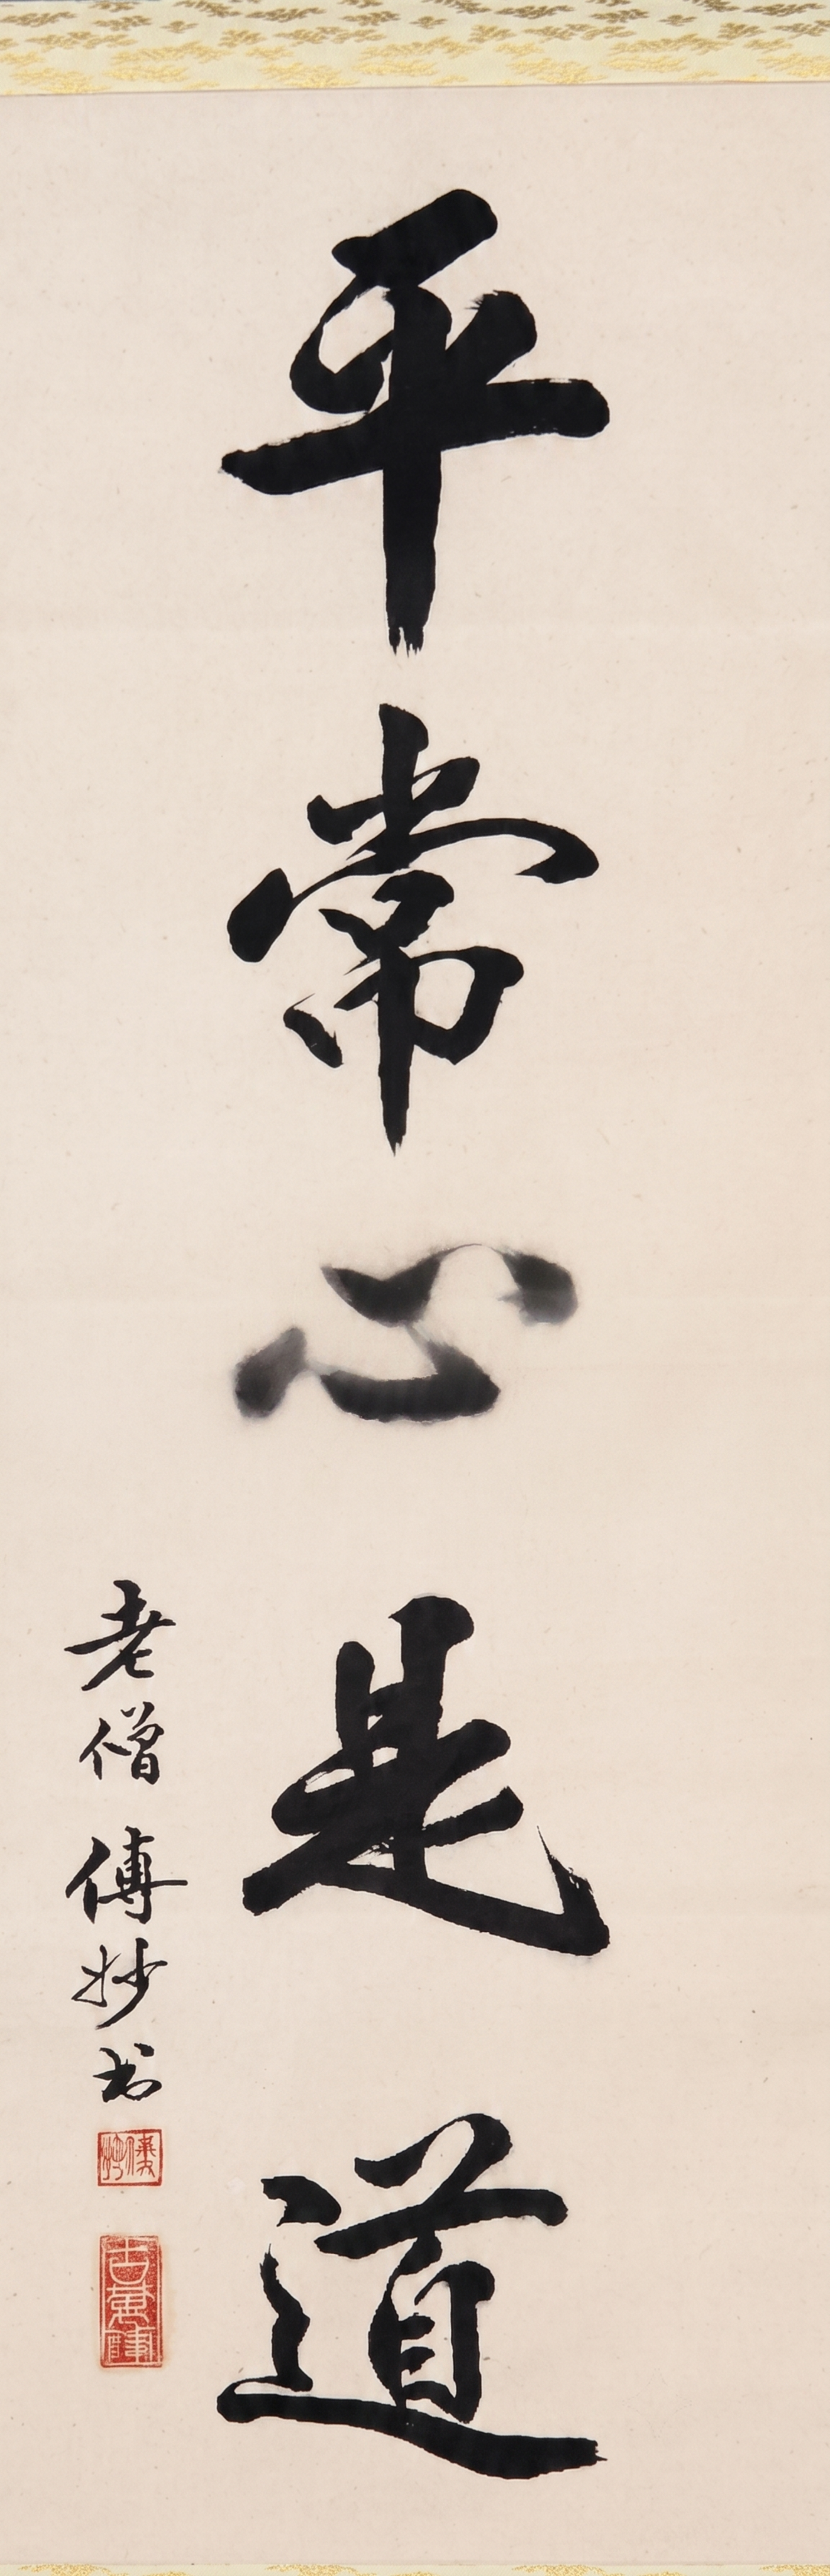 平常心是道
老僧傳妙书